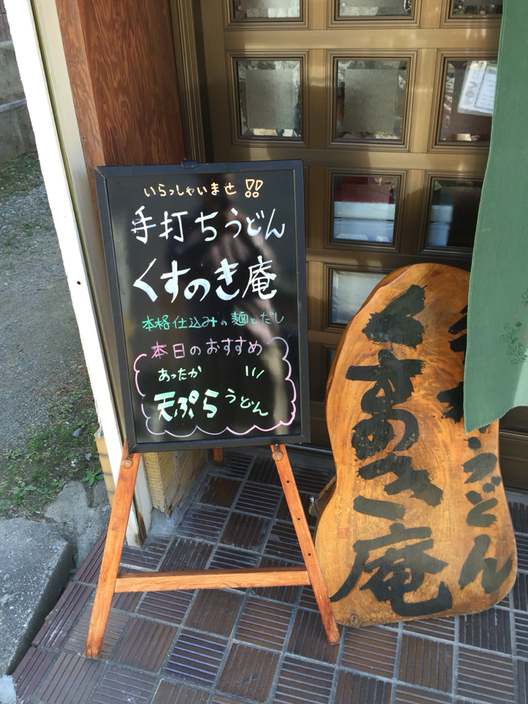 いらっしゃいませ!!
手打ちうどん
くすのき庵
本格仕込みの麺とだし
本日のおすすめ
あったか
天ぷらうどん
うどん
くすのき庵